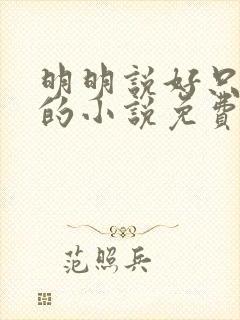 明明說好只
的小說免費
范照兵